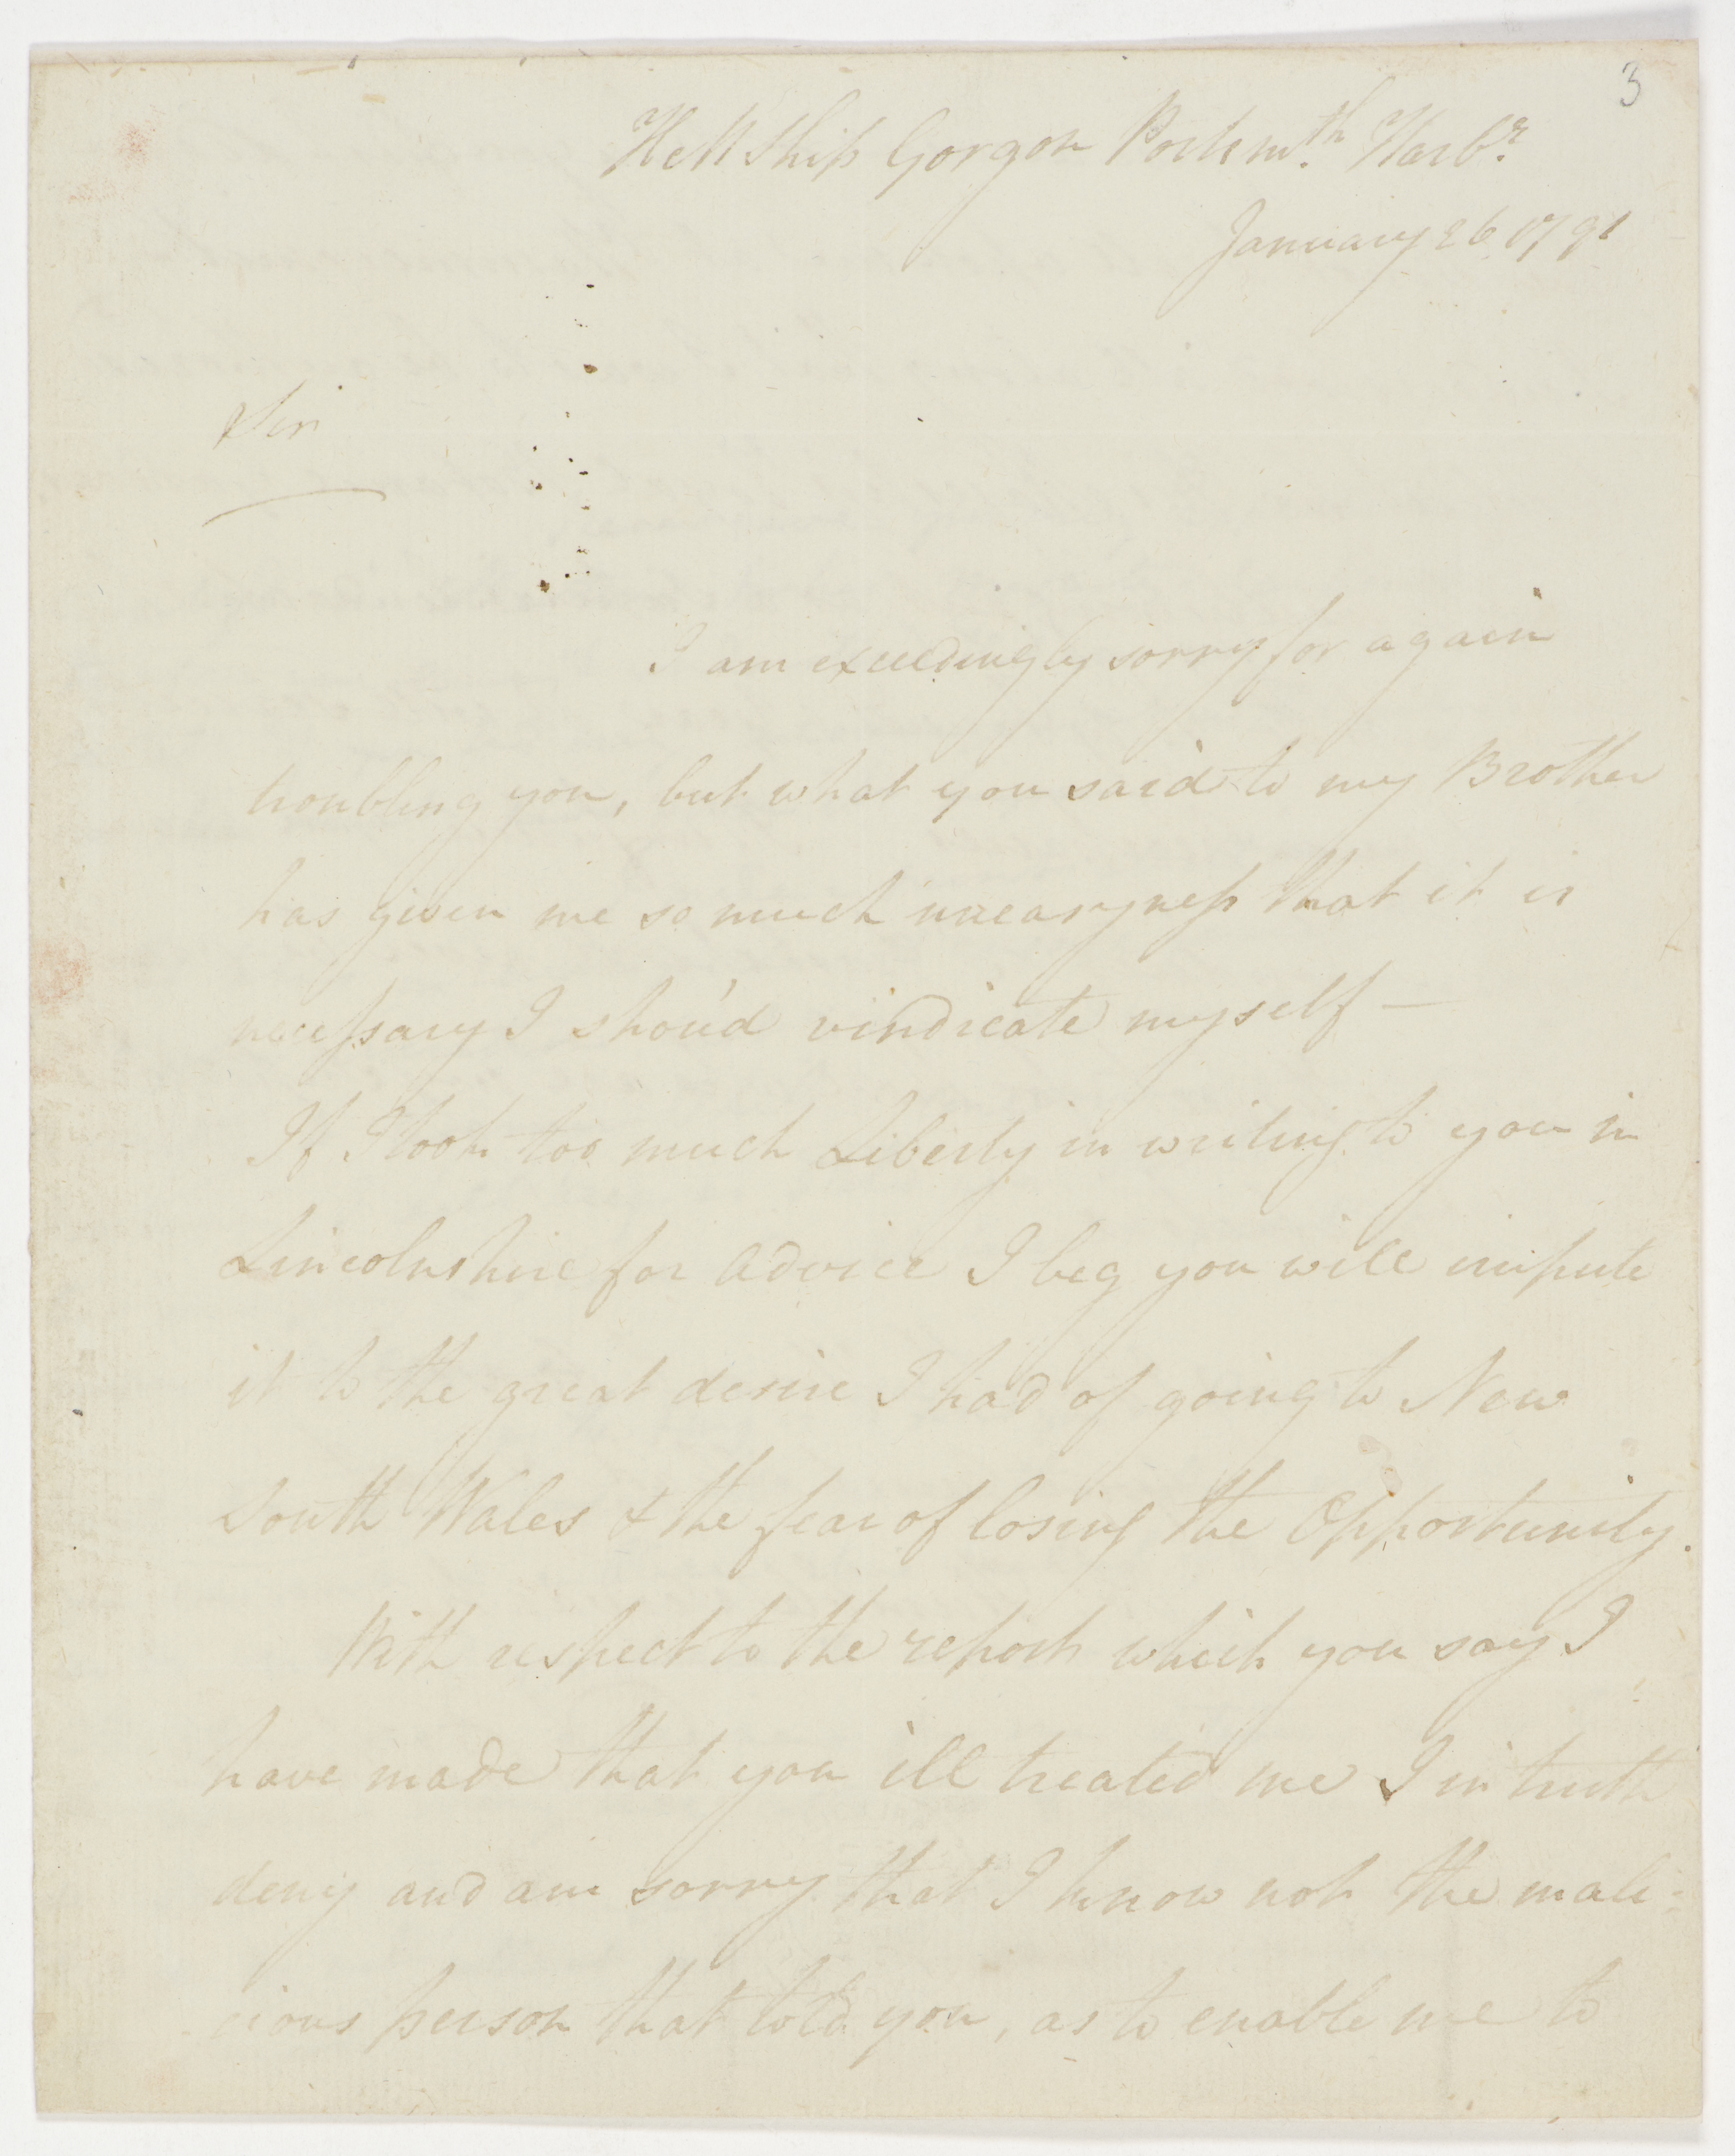 3
HM Ship Gorgon Portsmth Harbr
January 26 1791
Sir
I am exceedingly sorry for again
troubling you, but what you said to my Brother
has given me so much uneasyness that it is
necessary I shou'd vindicate myself —
If I took too much Liberty in writing to you in
Lincolnshire for advice I beg you will impute
it to the great desire I had of going to New
South Wales & the fear of losing the Opportunity.
With respect to the report which you say I
have made that you ill treated me I in truth
deny and am sorry that I know not the mali=
cious person that told you, as to enable me to